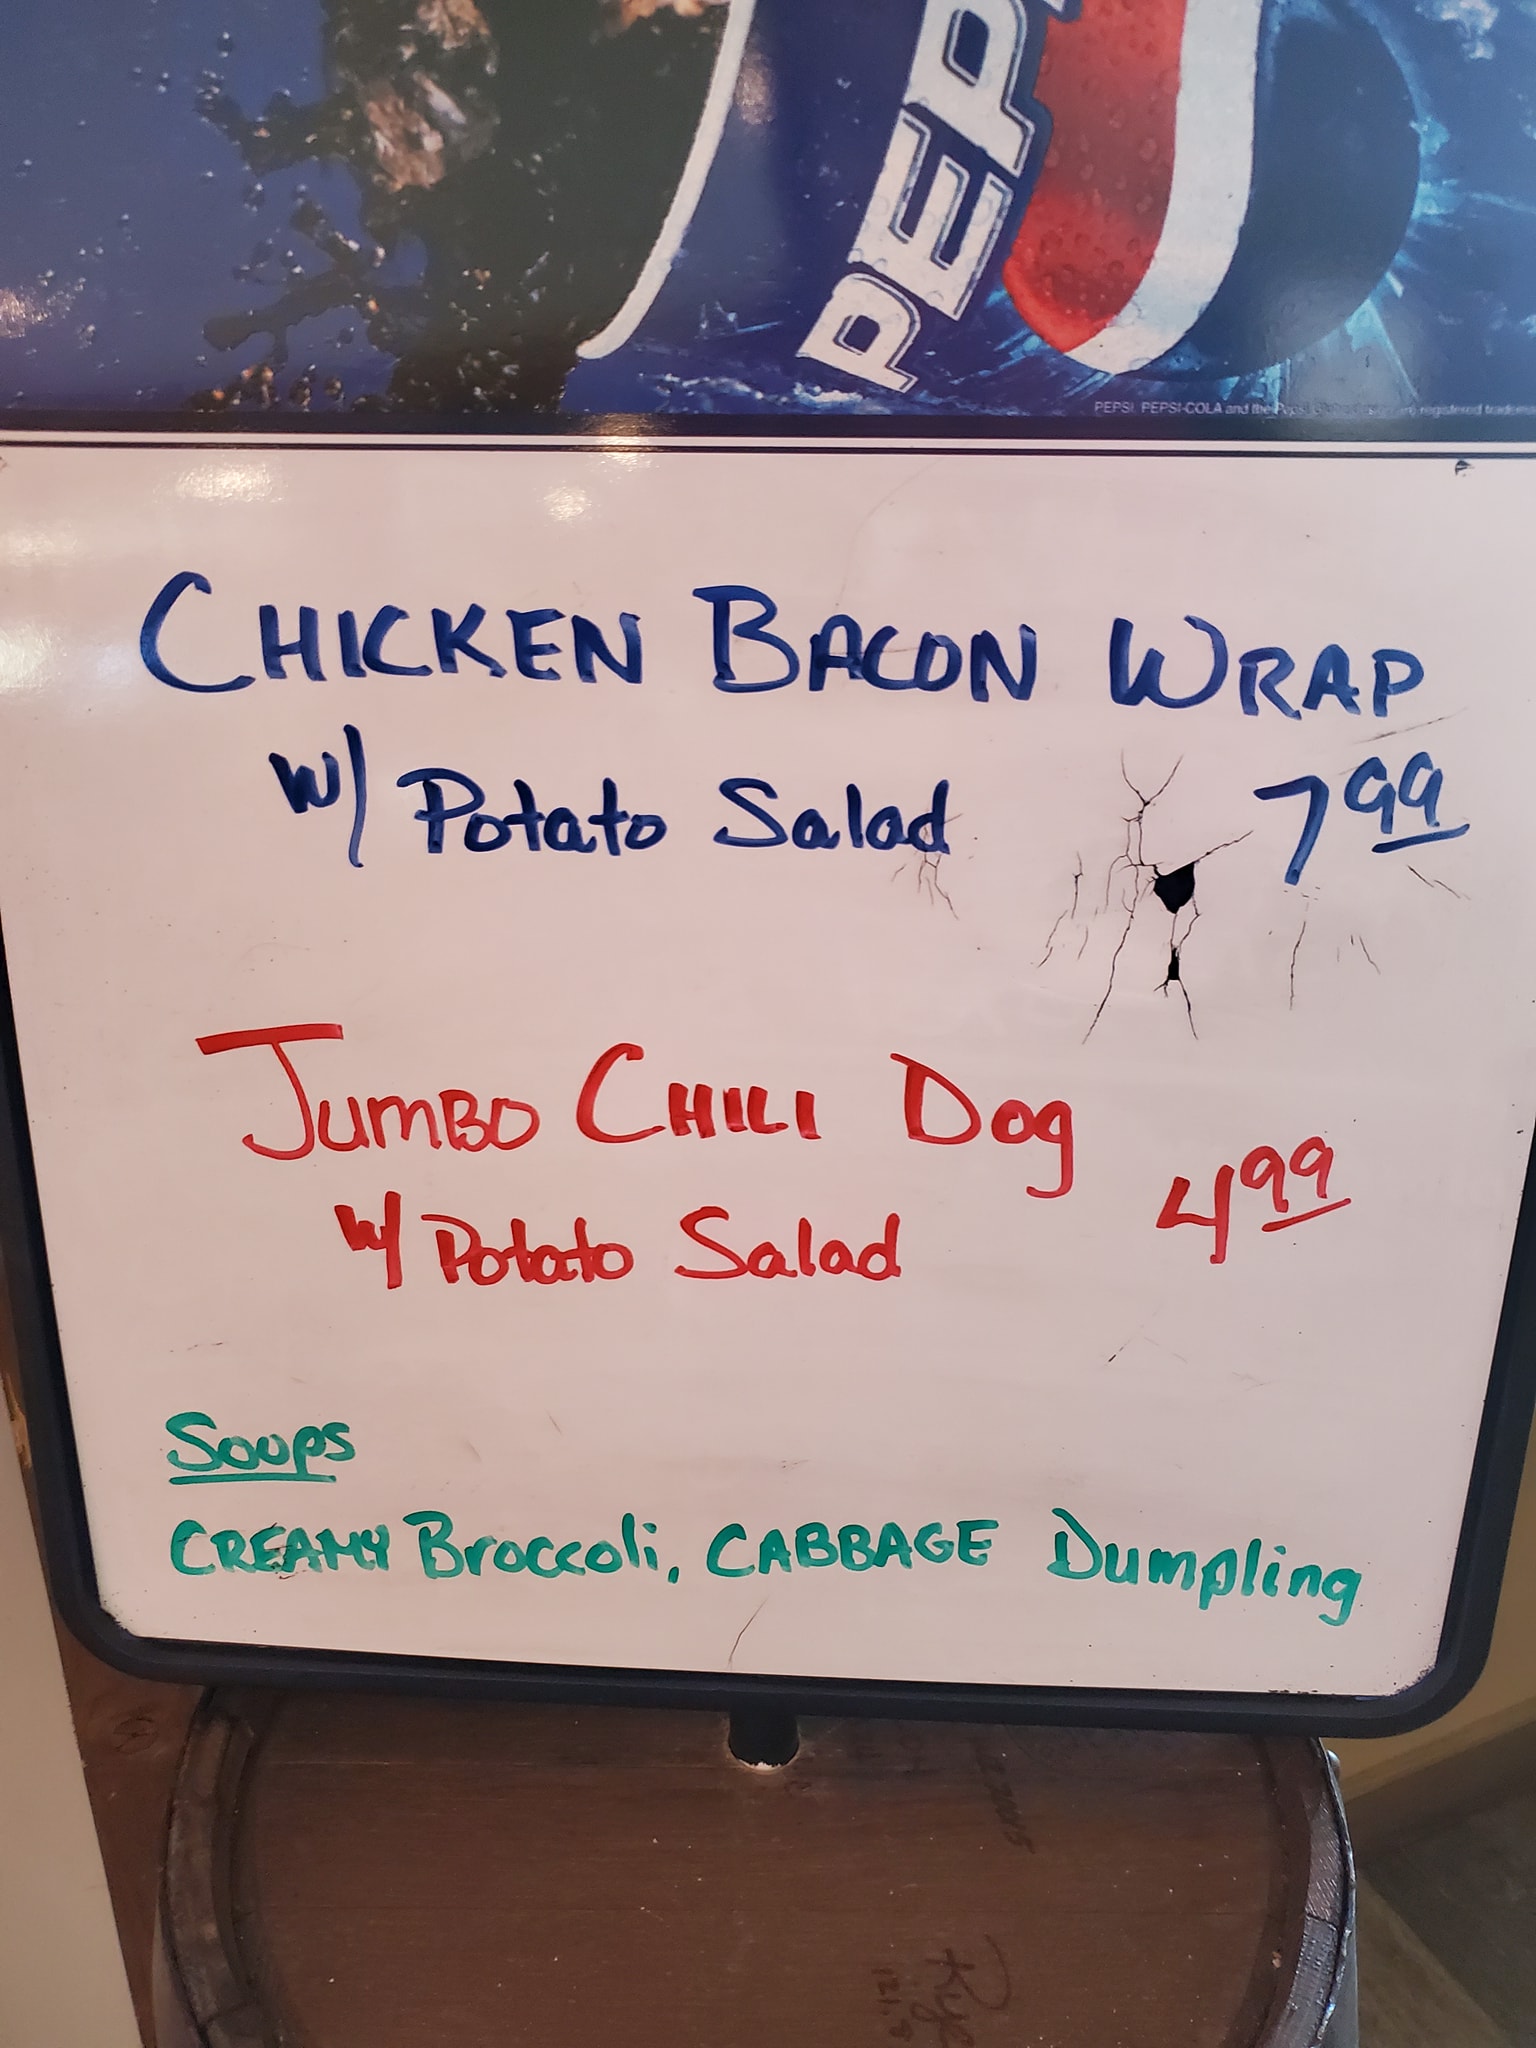 PEPS
PEPSI, PEPSI-COLA and the registered
CHICKEN BACON WRAP
w/ Potato Salad 7.99
JUMBO CHILI Dog
w/ Potato Salad 4.99
Soups
CREAMY Broccoli, CABBAGE Dumpling
Rye